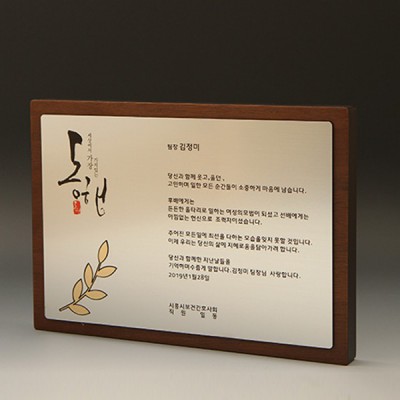 세상에서 가장
가치있는
동행
팀장 김정미
당신과 함께 웃고,울던 ,
고민하며 일한 모든 순간들이 소중하게 마음에 남습니다.
후배에게는
든든한 울타리로 일하는 여성의모범이 되셨고 선배에게는
아낌없는 헌신으로 조력자이셨습니다.
주어진 모든일에 최선을 다하는 모습을잊지 못할 것입니다.
이제 우리는 당신의 삶에 지혜로움을담아가려 합니다.
당신과 함께한 지난날들을
기억하며수줍게 말합니다.김정미 팀장님 사랑합니다.
2019년1월28일
시흥시보건간호사회
직 원 일 동